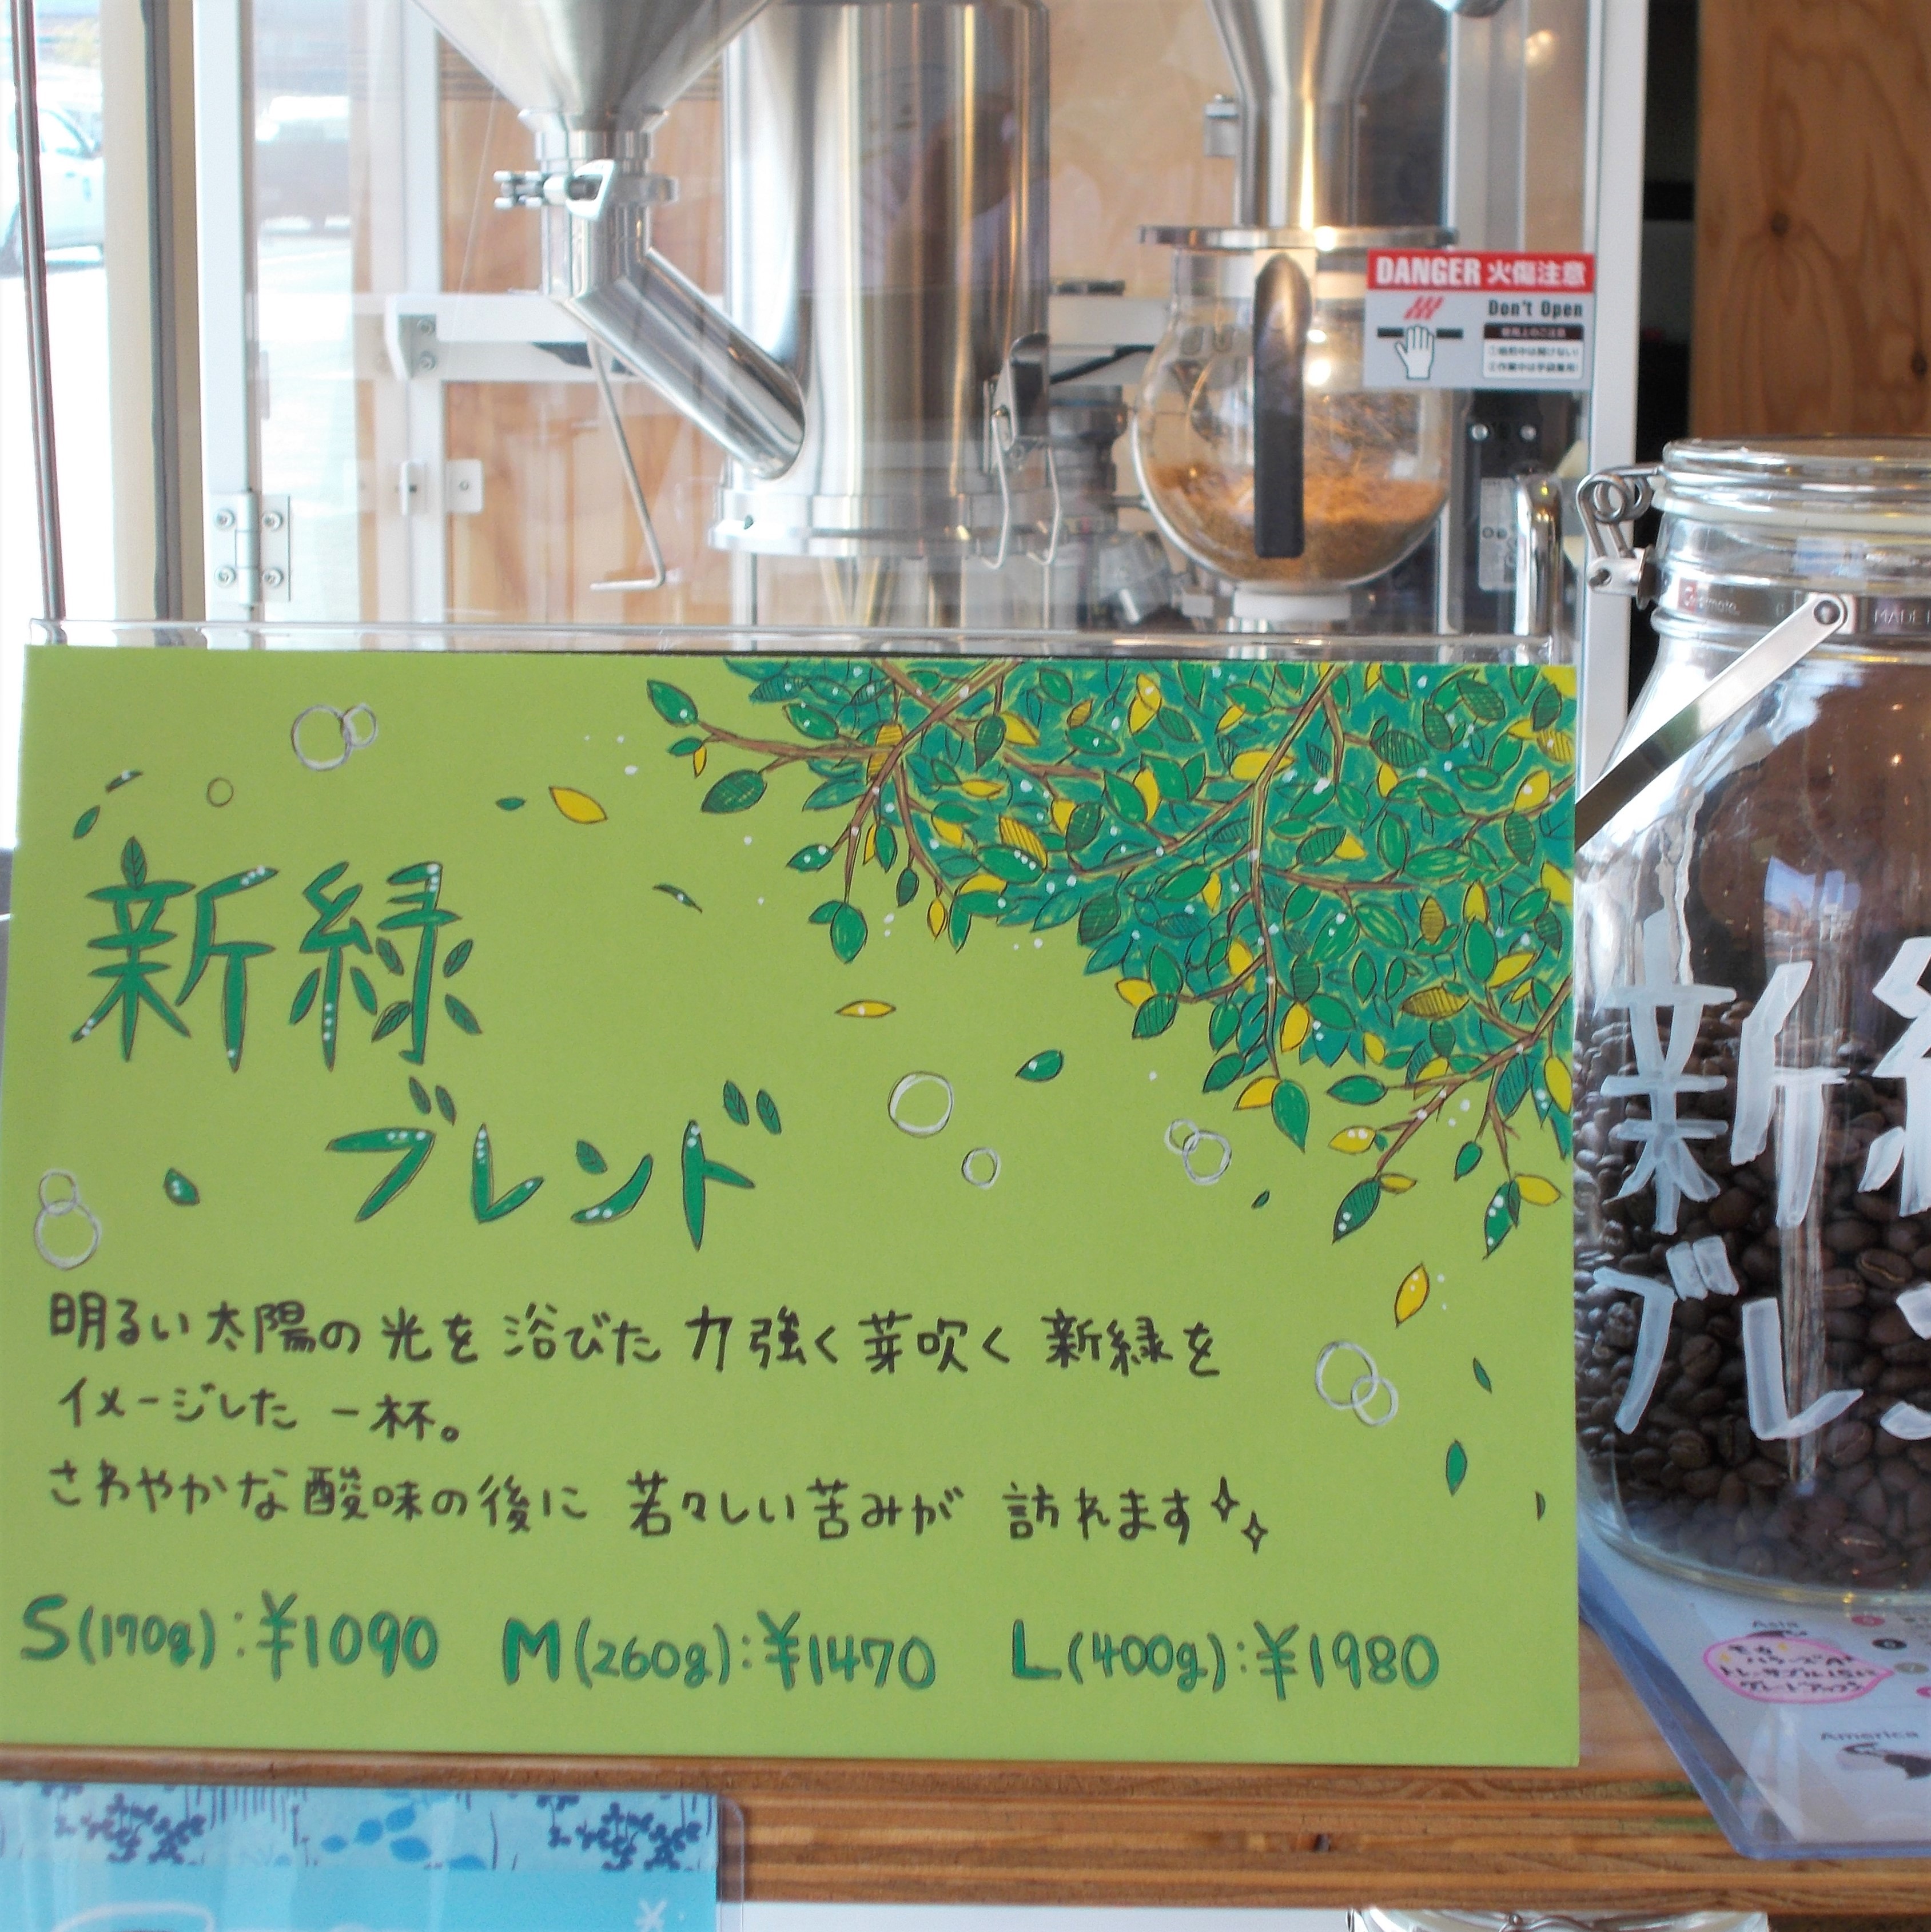 DANGER 火傷注意
Don't Open
使用上のご注意
新緑
ブレンド
明るい太陽の光を浴びた力強く芽吹く新緑を
イメージした一杯。
さわやかな酸味の後に若々しい苦みが訪れます
S(170g):¥1090 M(260g):¥1470 L(400g):¥1980
MADE
新緑
ブレン
Asia
America